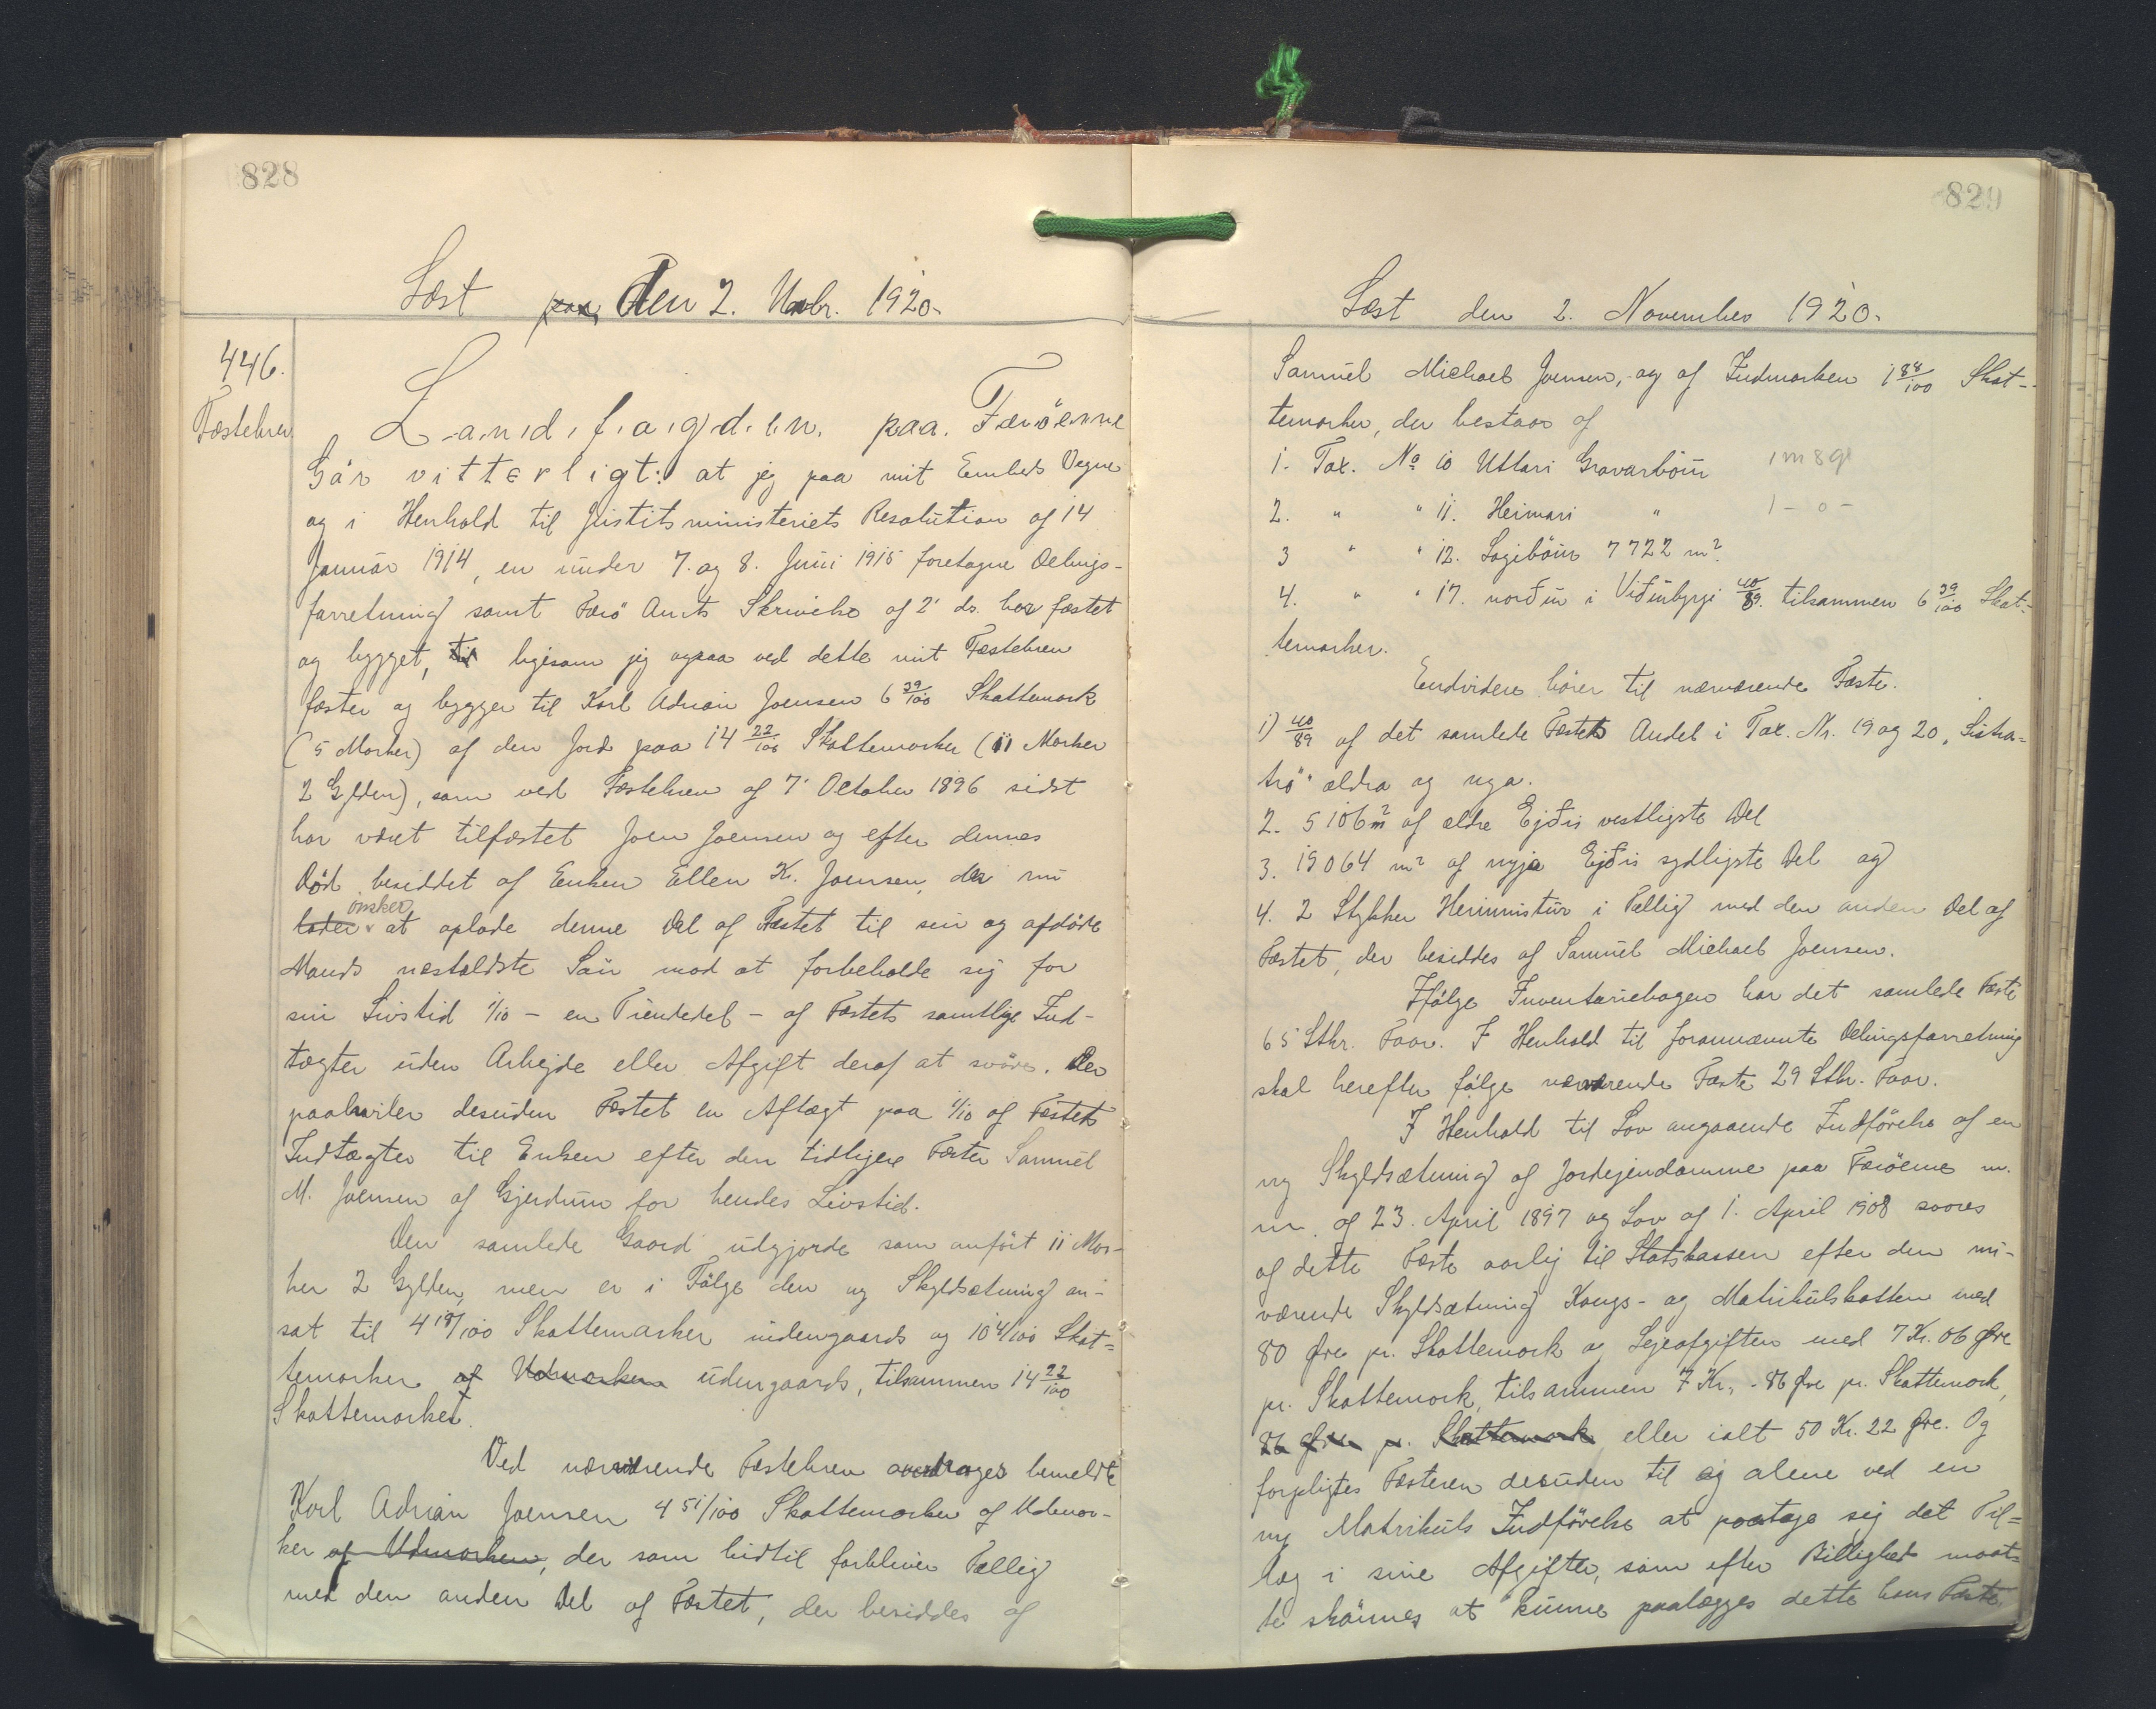 828
Læst ~~paa~~ den 2. Novbr. 1920.
446.
Fæstebrev.
Landfogden paa Færöerne
Gör vitterligt: at jeg paa mit Embeds Vegne
og i Henhold til Justitsministeriets Resolution af 14
Januar 1914, en under 7. og 8. Juni 1915 foretagne Delings-
forretning samt Færö Amts Skrivelse af 2' ds. har fæstet
og bygget, ligesom jeg ogsaa ved dette mit Fæstebrev
fæster og bygger til Karl Adrian Joensen 6 39/100 Skattemark
(5 Marker) af den Jord paa 14 22/100 Skattemarker (11 Marker
2 Gylden), som ved Fæstebrev af 7' October 1896 sidst
har været tilfæstet Joen Joensen og efter dennes
Död besiddet af Enken Ellen K. Joensen, der nu
~~lader~~ önsker at oplade denne Del af Fæstet til sin og afdöde
Mands næstældste Sön mod at forbeholde sig for
sin Livstid 1/10 - en Tiendedel - af Fæstets samtlige Ind-
tægter uden Arbejde eller Afgift deraf at svare. Der
paahviler desuden Fæstet en Aftægt paa 1/10 af Fæstets
Indtægter til Enken efter den tidligere Fæster Samuel
M. Joensen af Gjerdum for hendes Livstid.
Den samlede Gaard udgjorde som anfört 11 Mar-
ker 2 Gylden, men er i Fölge den ny Skyldsætning an-
sat til 4 18/100 Skattemarker indengaards og 10 4/100 Skat-
temarker ~~af Udmarken~~ udengaards, tilsammen 14 22/100
Skattemarker.
Ved nærværende Fæstebrev overdrages bemeldte
Karl Adrian Joensen 4 51/100 Skattemarker af Udmar-
ken ~~af Udmarken~~, der som hidtil forbliver Fællig
med den anden Del af Fæstet, der besiddes af
829
Læst den 2. November 1920.
Samuel Michael Joensen, og af Indmarken 1 88/100 Skat-
temarker, der bestaar af
1. Tax. No 10 Uttari Gravarböur 1 m 8 gl
2. " " 11. Heimari " 1 - 0 -
3 " " 12. Lagiböur 7722 m2
4. " " 17. norður i Viðinbyrgi 40/89. tilsammen 6 39/100 Skat-
temarker.
Endvidere hörer til nærværende Fæste.
1) 40/89 af det samlede Fæstets Andel i Tax. Nr. 19 og 20, Sistra-
trö" ældra og nya.
2. 5106 m2 af ældre Ejðis vestligste Del
3. 19064 m2 af nyja Ejðis sydligste Del og
4. 2 Stykker Heimistur i Fællig med den anden Del af
Fæstet, der besiddes af Samuel Michael Joensen.
Ifölge Inventariebogen har det samlede Fæste
65 Stkr. Faar. I Henhold til forannævnte Delingsforretning
skal herefter fölge nærværende Fæste 29 Stkr. Faar.
I Henhold til Lov angaaende Indförelse af en
ny Skyldsætning af Jordejendomme paa Færöerne m.
m. af 23. April 1897 og Lov af 1. April 1908 svares
af dette Fæste aarlig til Statskassen efter den nu-
værende Skyldsætning Kongs- og Matrikulskatten med
80 Øre pr. Skattemark og Lejeafgiften med 7 Kr. 06 Øre
pr. Skattemark, tilsammen 7 Kr. 86 Øre pr. Skattemark,
~~86 Øre pr. Skattemark~~ eller ialt 50 Kr. 22 Øre. Og
forpligtes Fæsteren desuden til og alene ved en
ny Matrikuls Indförelse at paatage sig det Til-
læg i sine Afgifter, som efter Billighed maat-
te skönnes at kunne paalægges dette hans Fæste.